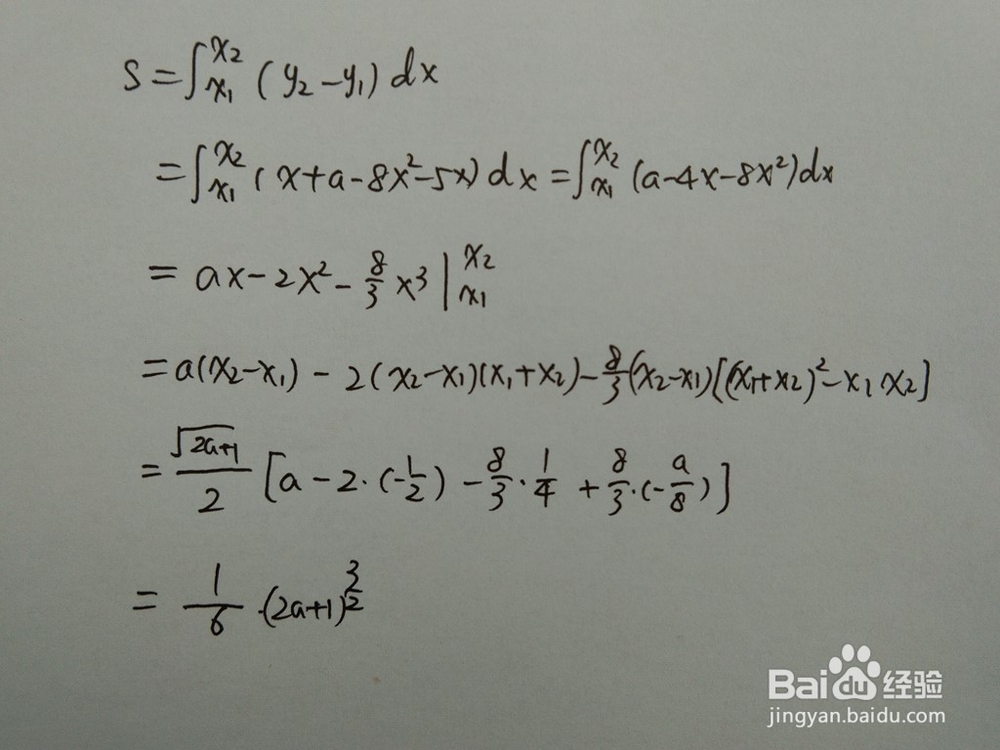 S = ∫_{x₁}^{x₂} (y₂ - y₁) dx
= ∫_{x₁}^{x₂} (x + a - 8x² - 5x) dx = ∫_{x₁}^{x₂} (a - 4x - 8x²) dx
= ax - 2x² - 8/3 x³ |_{x₁}^{x₂}
= a(x₂ - x₁) - 2(x₂ - x₁)(x₁ + x₂) - 8/3 (x₂ - x₁)[(x₁ + x₂)² - x₁x₂]
= √(2a+1)/2 [a - 2·(-1/2) - 8/3 · 1/4 + 8/3·(-a/8)]
= 1/6 ·(2a+1)^{3/2}
Baidu 经验
jingyan.baidu.com